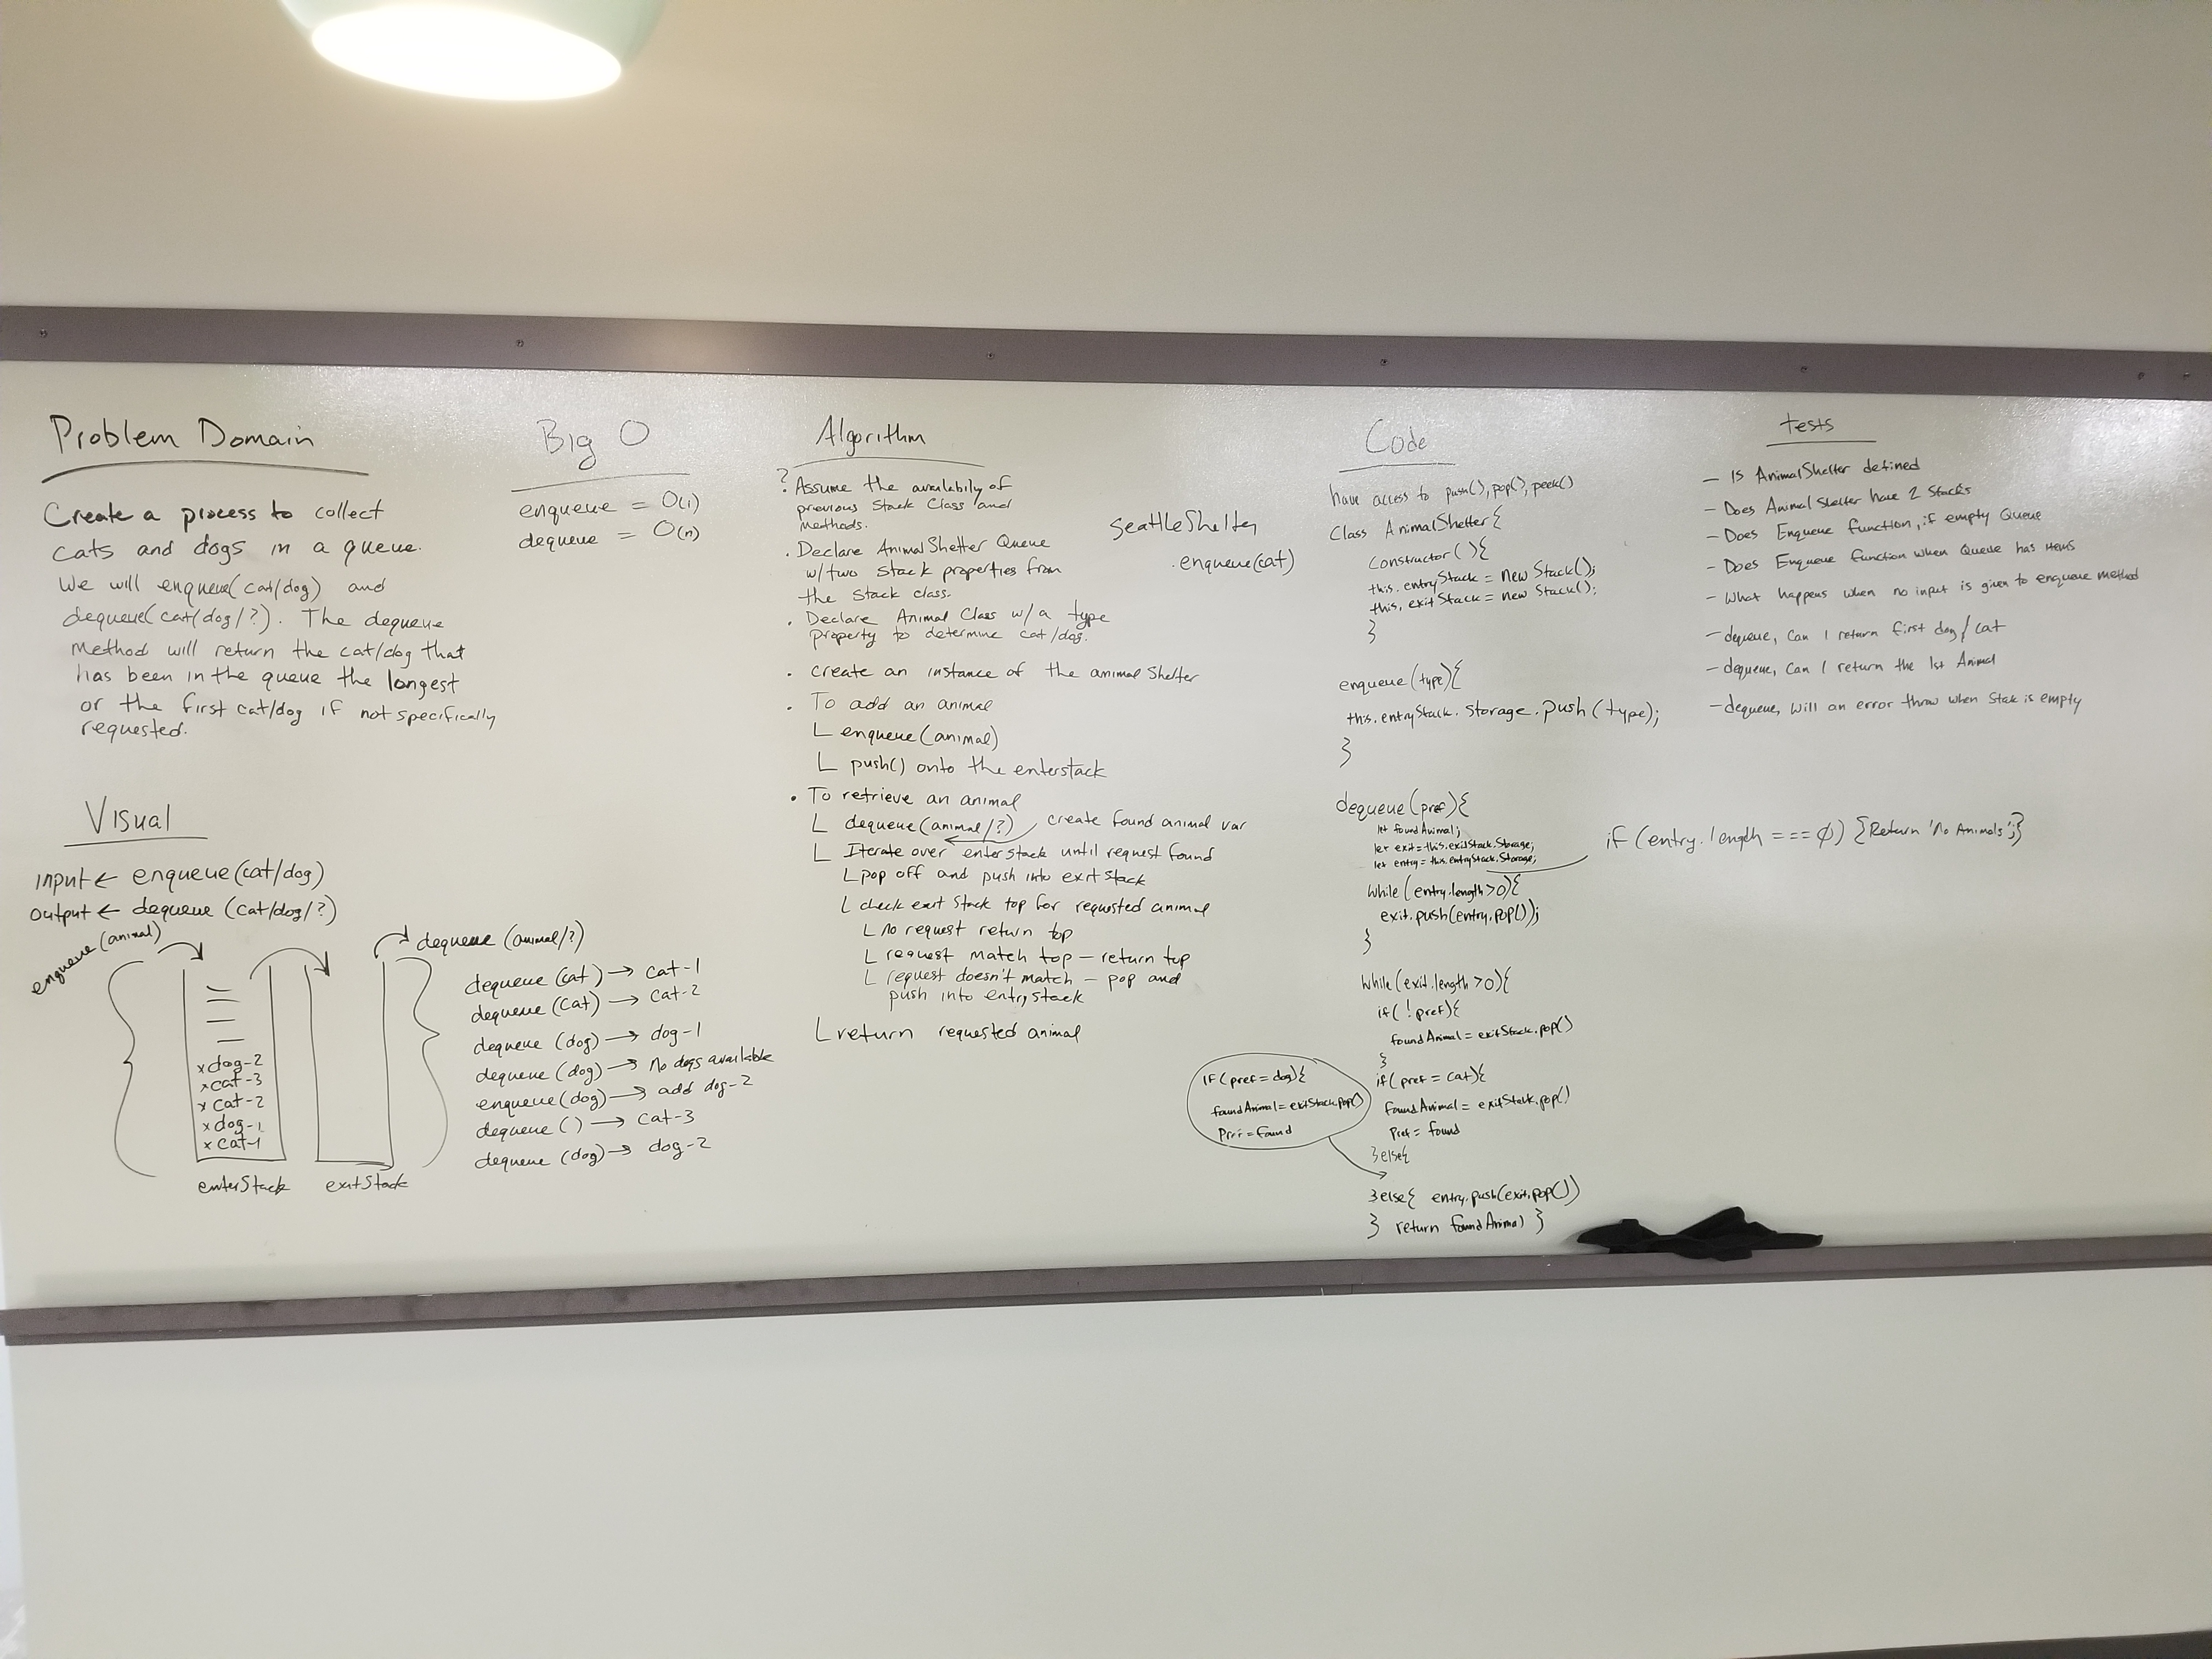 Problem Domain
Create a process to collect
cats and dogs in a queue.
We will enqueue(cat/dog) and
dequeue(cat/dog/?). The dequeue
method will return the cat/dog that
has been in the queue the longest
or the first cat/dog if not specifically
requested.
Visual
input ← enqueue(cat/dog)
output ← dequeue (cat/dog/?)
enqueue(animal)
dequeue (animal/?)
x dog-2
x cat-3
x cat-2
x dog-1
x cat-1
enterStack
exitStack
dequeue (cat) → cat-1
dequeue (cat) → cat-2
dequeue (dog) → dog-1
dequeue (dog) → no dogs available
enqueue(dog) → add dog-2
dequeue ( ) → cat-3
dequeue (dog) → dog-2
Big O
enqueue = O(1)
dequeue = O(n)
Algorithm
? Assume the availabily of
previous Stack Class and
methods.
. Declare AnimalShelter Queue
w/two Stack properties from
the Stack class.
. Declare Animal Class w/a type
property to determine cat/dog.
. create an instance of the animal Shelter
. To add an animal
L enqueue(animal)
L push() onto the enterstack
• To retrieve an animal
L dequeue(animal/?)
create found animal var
L Iterate over enterstack until request found
L pop off and push into exit stack
L check exit stack top for requested animal
L no request return top
L request match top – return top
L request doesn't match – pop and
push into entry stack
L return requested animal
SeattleShelter
.enqueue(cat)
Code
have access to push(), pop(), peek()
Class AnimalShelter{
Constructor( ){
this.entryStack = new Stack();
this.exitStack = new Stack();
}
enqueue(type){
this.entryStack.Storage.push(type);
}
dequeue(pref){
let foundAnimal;
let exit = this.exitStack.Storage;
let entry = this.entryStack.Storage;
if (entry.length === 0) {Return 'No Animals';}
while (entry.length>0){
exit.push(entry.pop());
}
while(exit.length >0){
if( !pref){
foundAnimal = exitStack.pop()
}
if(pref = cat){
foundAnimal = exitStack.pop()
Pref = found
}else{
if(pref = dog){
foundAnimal = exitStack.pop()
Pref = found
}else{ entry.push(exit.pop())
} return foundAnimal }
tests
– Is AnimalShelter defined
– Does AnimalShelter have 2 Stacks
– Does Enqueue function, if empty Queue
– Does Enqueue function when Queue has items
– What happens when no input is given to enqueue method
– dequeue, Can I return first dog/cat
– dequeue, Can I return the 1st Animal
– dequeue, Will an error throw when Stak is empty